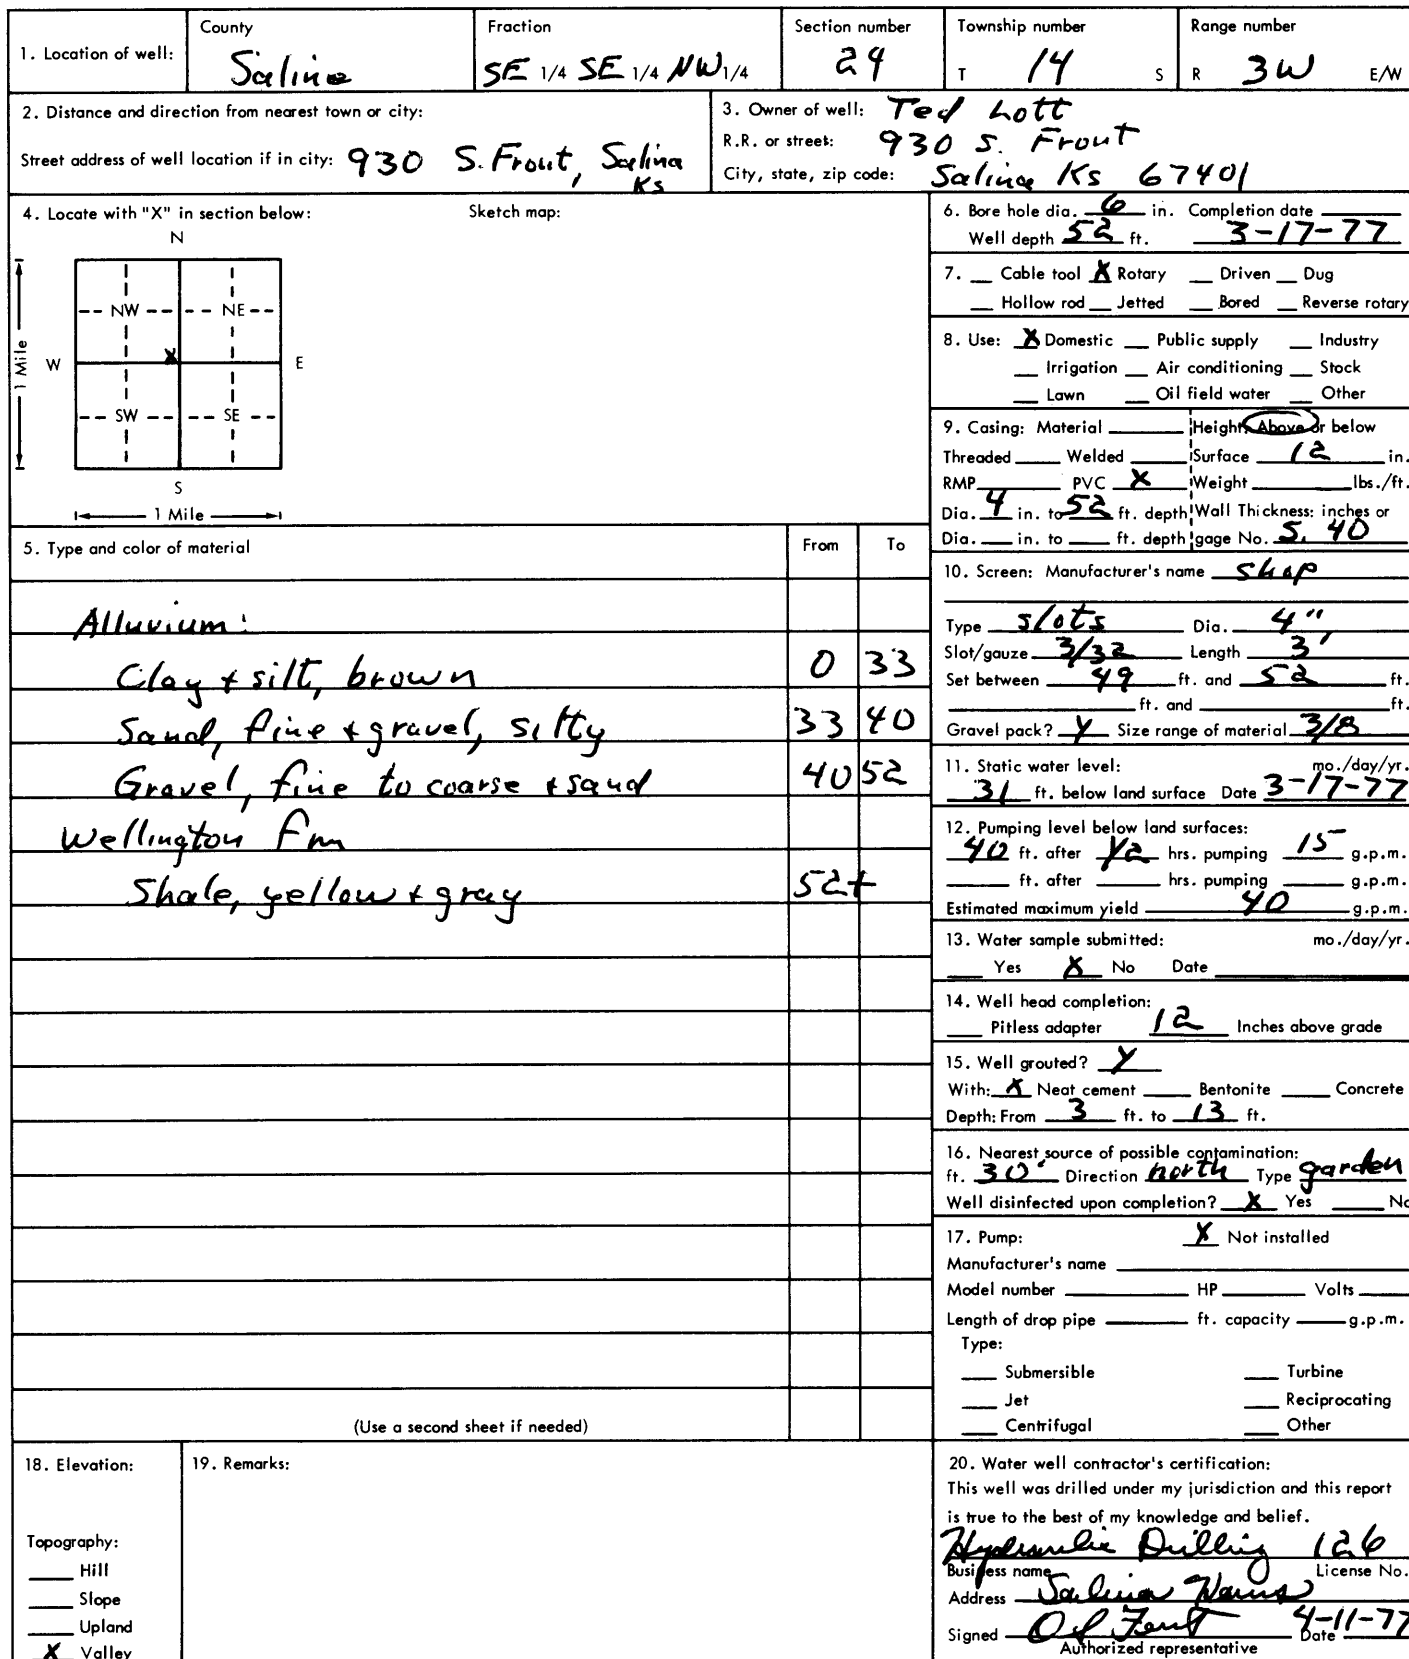 1. Location of well: County Saline Fraction SE 1/4 SE 1/4 NW 1/4 Section number 24 Township number T 14 S Range number R 3W E/W
2. Distance and direction from nearest town or city:
Street address of well location if in city: 930 S. Front, Salina Ks
3. Owner of well: Ted Lott
R.R. or street: 930 S. Front
City, state, zip code: Salina Ks 67401
4. Locate with "X" in section below: Sketch map:
N
NW NE
1 Mile W X E
SW SE
S
1 Mile
5. Type and color of material From To
Alluvium:
Clay + silt, brown 0 33
Sand, fine + gravel, silty 33 40
Gravel, fine to coarse + sand 40 52
Wellington Fm
Shale, yellow + gray 52+
(Use a second sheet if needed)
6. Bore hole dia. 6 in. Completion date
Well depth 52 ft. 3-17-77
7. Cable tool X Rotary Driven Dug
Hollow rod Jetted Bored Reverse rotary
8. Use: X Domestic Public supply Industry
Irrigation Air conditioning Stock
Lawn Oil field water Other
9. Casing: Material Height: Above or below
Threaded Welded Surface 12 in.
RMP PVC X Weight lbs./ft.
Dia. 4 in. to 52 ft. depth Wall Thickness: inches or
Dia. in. to ft. depth gage No. S. 40
10. Screen: Manufacturer's name shop
Type slots Dia. 4"
Slot/gauze 3/32 Length 3'
Set between 49 ft. and 52 ft.
ft. and ft.
Gravel pack? Y Size range of material 3/8
11. Static water level: mo./day/yr.
31 ft. below land surface Date 3-17-77
12. Pumping level below land surfaces:
40 ft. after 1/2 hrs. pumping 15 g.p.m.
ft. after hrs. pumping g.p.m.
Estimated maximum yield 40 g.p.m.
13. Water sample submitted: mo./day/yr.
Yes X No Date
14. Well head completion:
Pitless adapter 12 Inches above grade
15. Well grouted? Y
With: X Neat cement Bentonite Concrete
Depth: From 3 ft. to 13 ft.
16. Nearest source of possible contamination:
ft. 30' Direction north Type garden
Well disinfected upon completion? X Yes No
17. Pump: X Not installed
Manufacturer's name
Model number HP Volts
Length of drop pipe ft. capacity g.p.m.
Type:
Submersible Turbine
Jet Reciprocating
Centrifugal Other
18. Elevation:
Topography:
Hill
Slope
Upland
X Valley
19. Remarks:
20. Water well contractor's certification:
This well was drilled under my jurisdiction and this report
is true to the best of my knowledge and belief.
Hydraulic Drilling 126
Business name License No.
Address Salina
Signed Date 4-11-77
Authorized representative